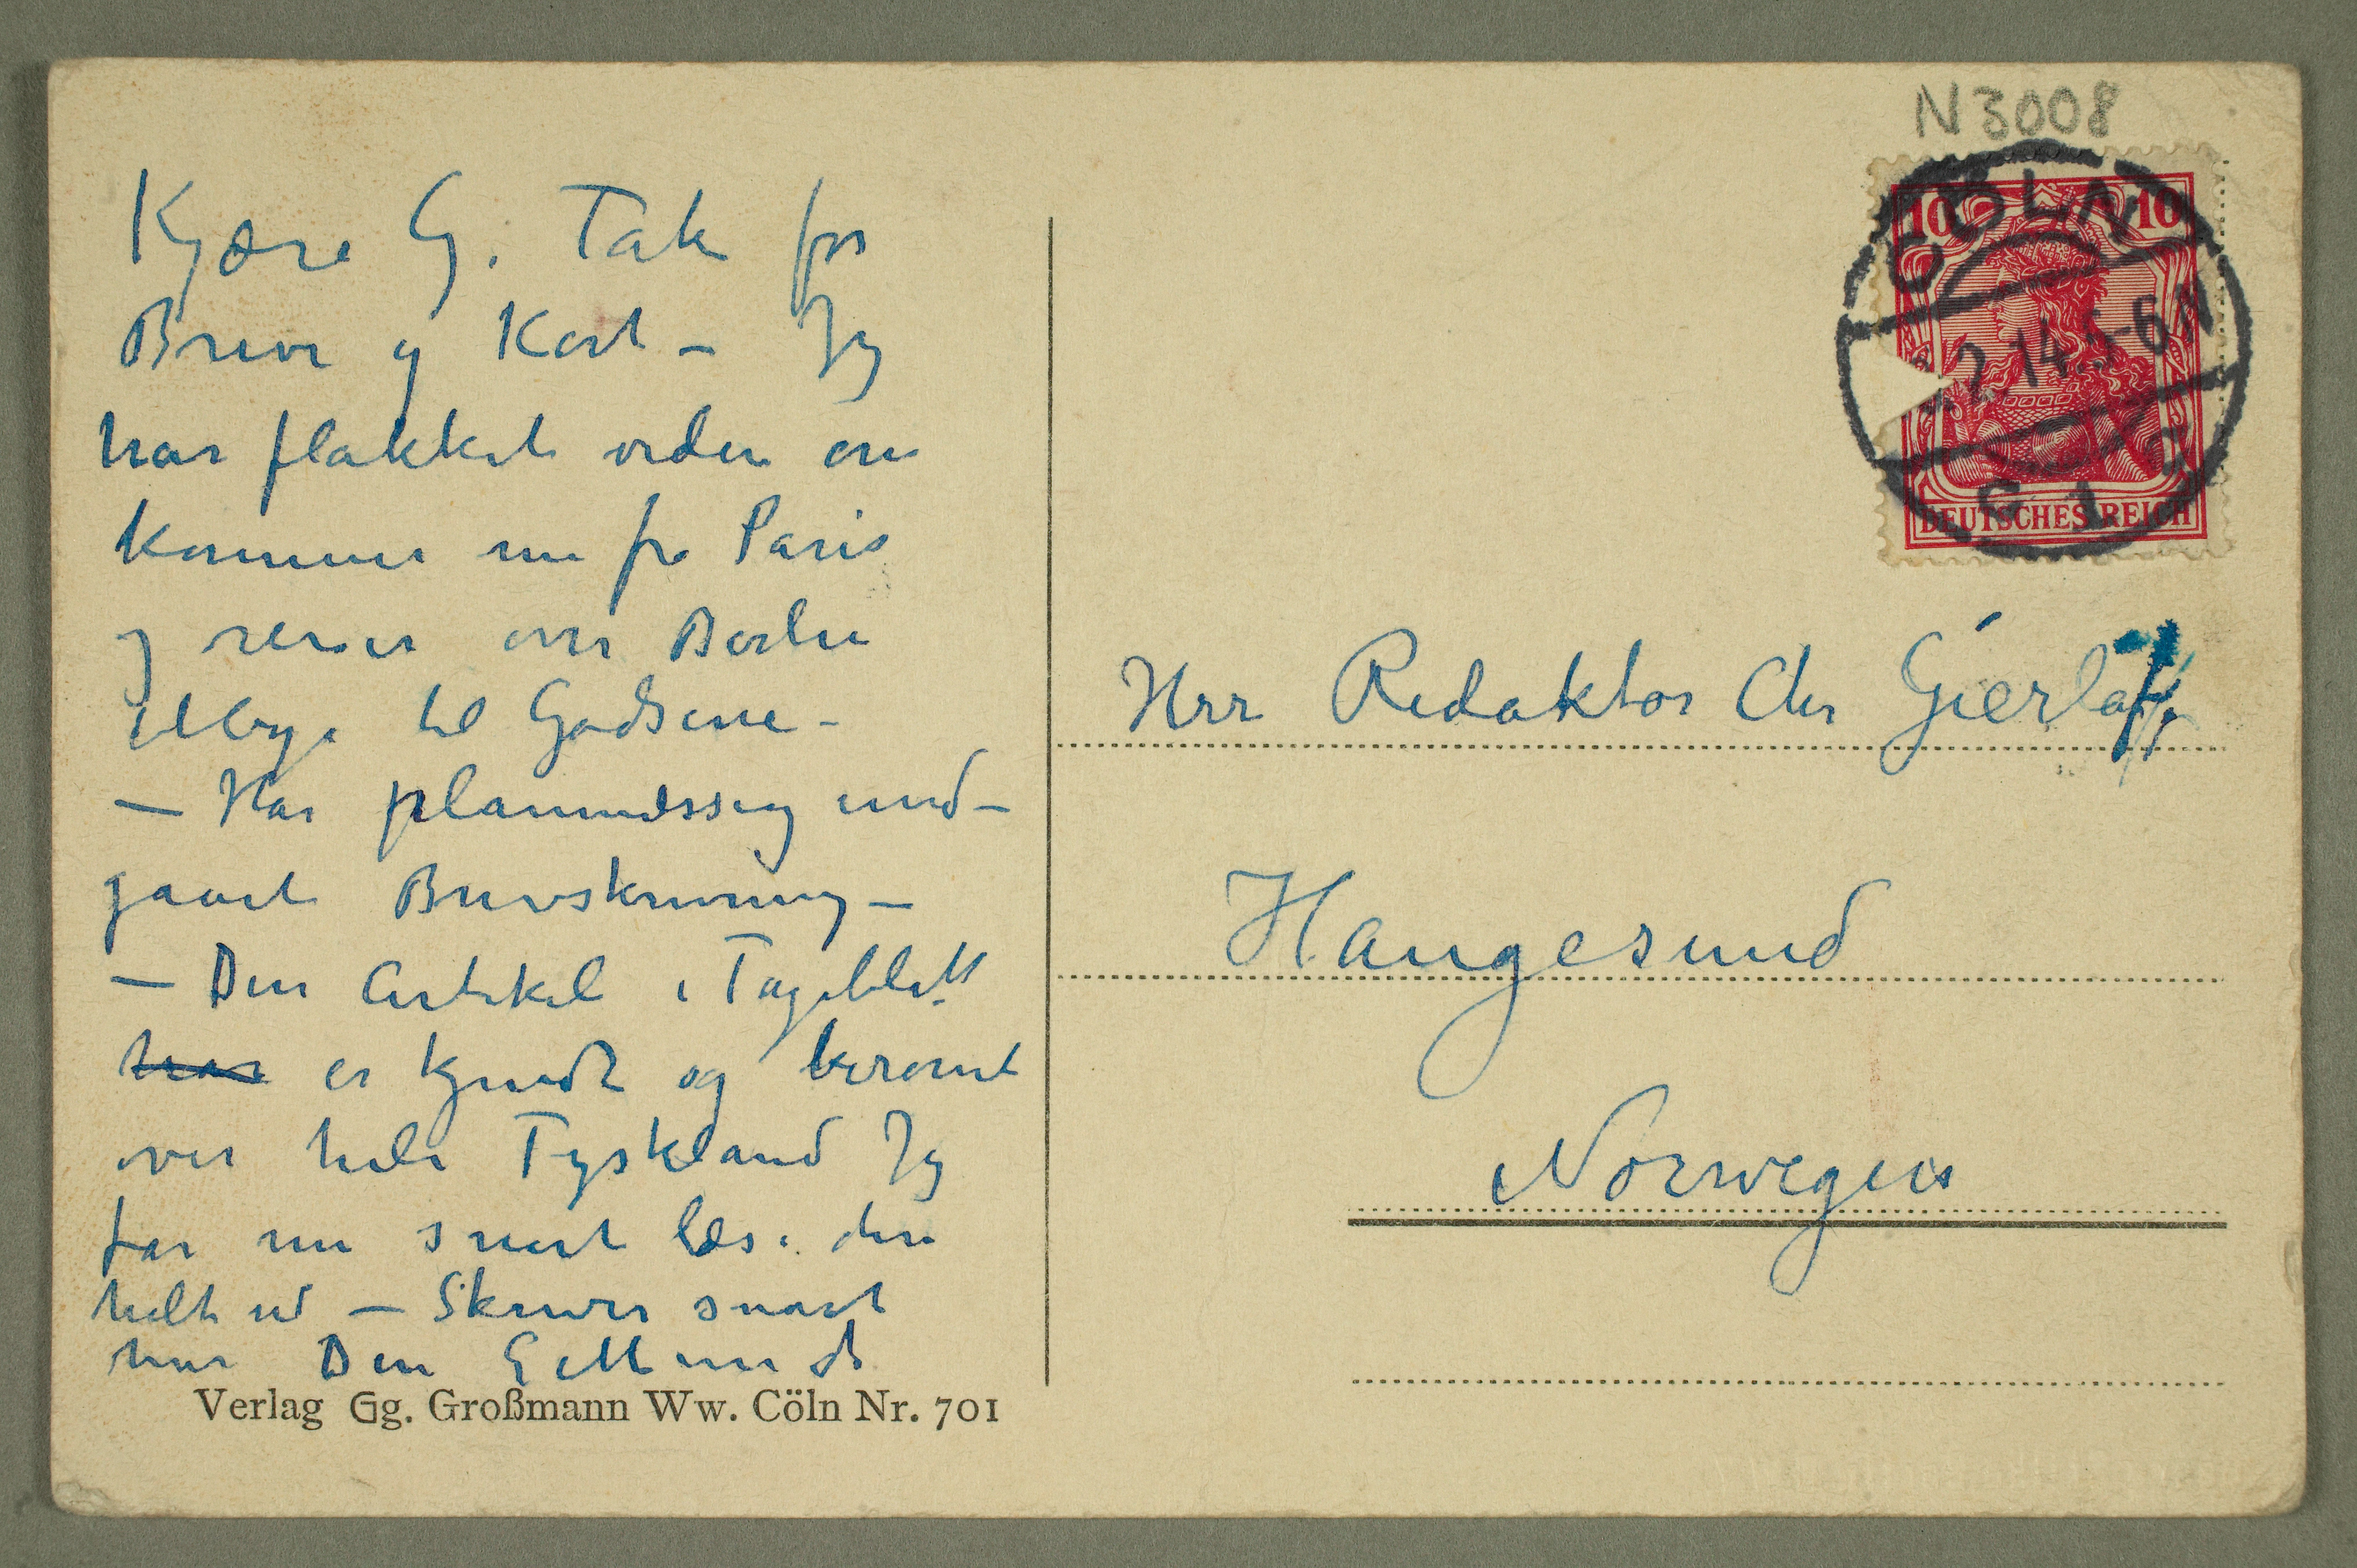 N3008
CÖLN
2.14.5-6N
C 1
10 10
DEUTSCHES REICH
Kjære G. Tak for
Breve og Kort – Jg
har flakket verden om
kommer nu fra Paris
og reiser over Berlin
tilbage til Godsene –
– Har planmæssig und–
gaaet Brevskrivning –
– Din Artikel i Tageblatt
har er kjendt og berømt
over hele Tyskland Jg
får nu snart læse den
helt ud – Skriver snart
mer Din E Munch
Herr Redaktør Chr Gierløff
Haugesund
Norwegen
Verlag Gg. Großmann Ww. Cöln Nr. 701